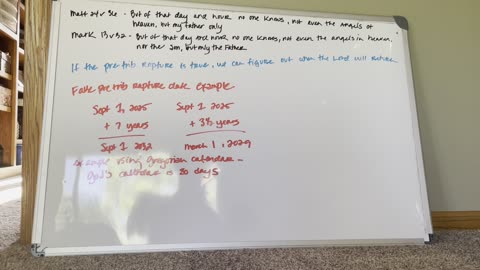 matt 24 v 36 - But of that day and hour no one knows, not even the Angels of
heaven, but my Father only
mark 13 v 32 - But of that day and hour no one knows, not even the angels in heaven,
nor the Son, but only the Father
If the pre trib Rapture is true, we can figure out when the Lord will return
False pre trib rapture date example
Sept 1, 2025 Sept 1 2025
+ 7 years + 3½ years
Sept 1 2032 march 1, 2029
Example using gregorian calendar -
God's calendar is 30 days